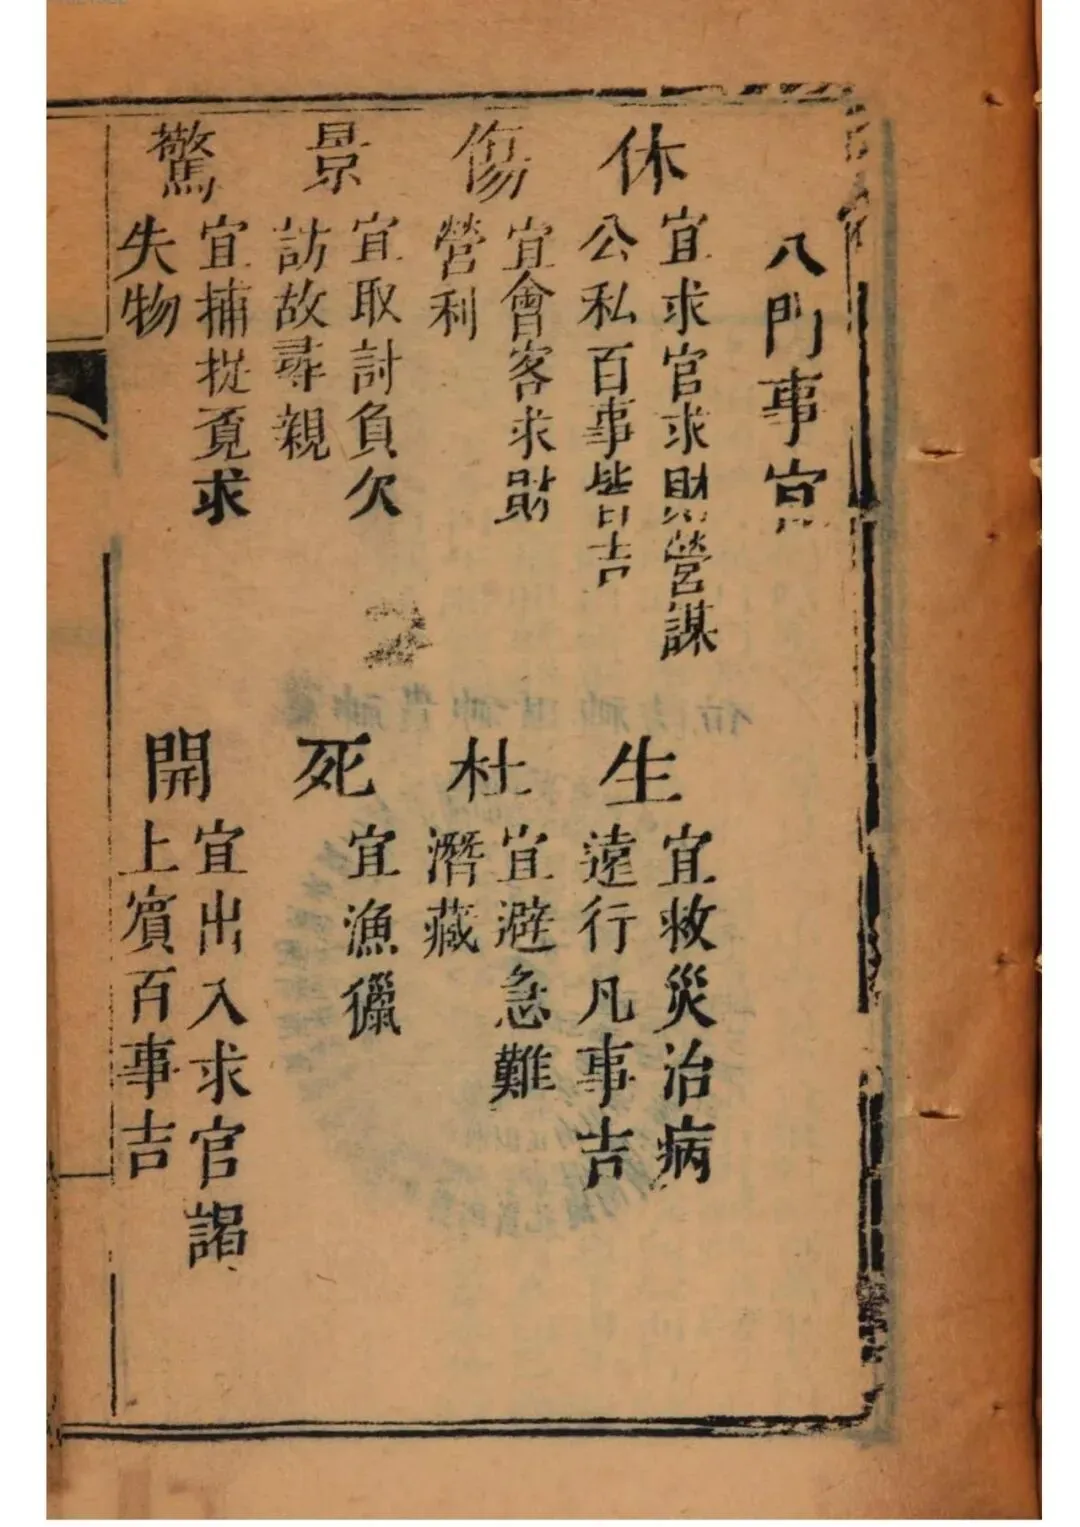 八門事宜
休
宜求官求財營謀
公私百事皆吉
生
宜救災治病
遠行凡事吉
傷
宜會客求財
營利
杜
宜避急難
潛藏
景
宜取討負欠
訪故尋親
死
宜漁獵
驚
宜捕捉覓求
失物
開
宜出入求官謁
上賓百事吉